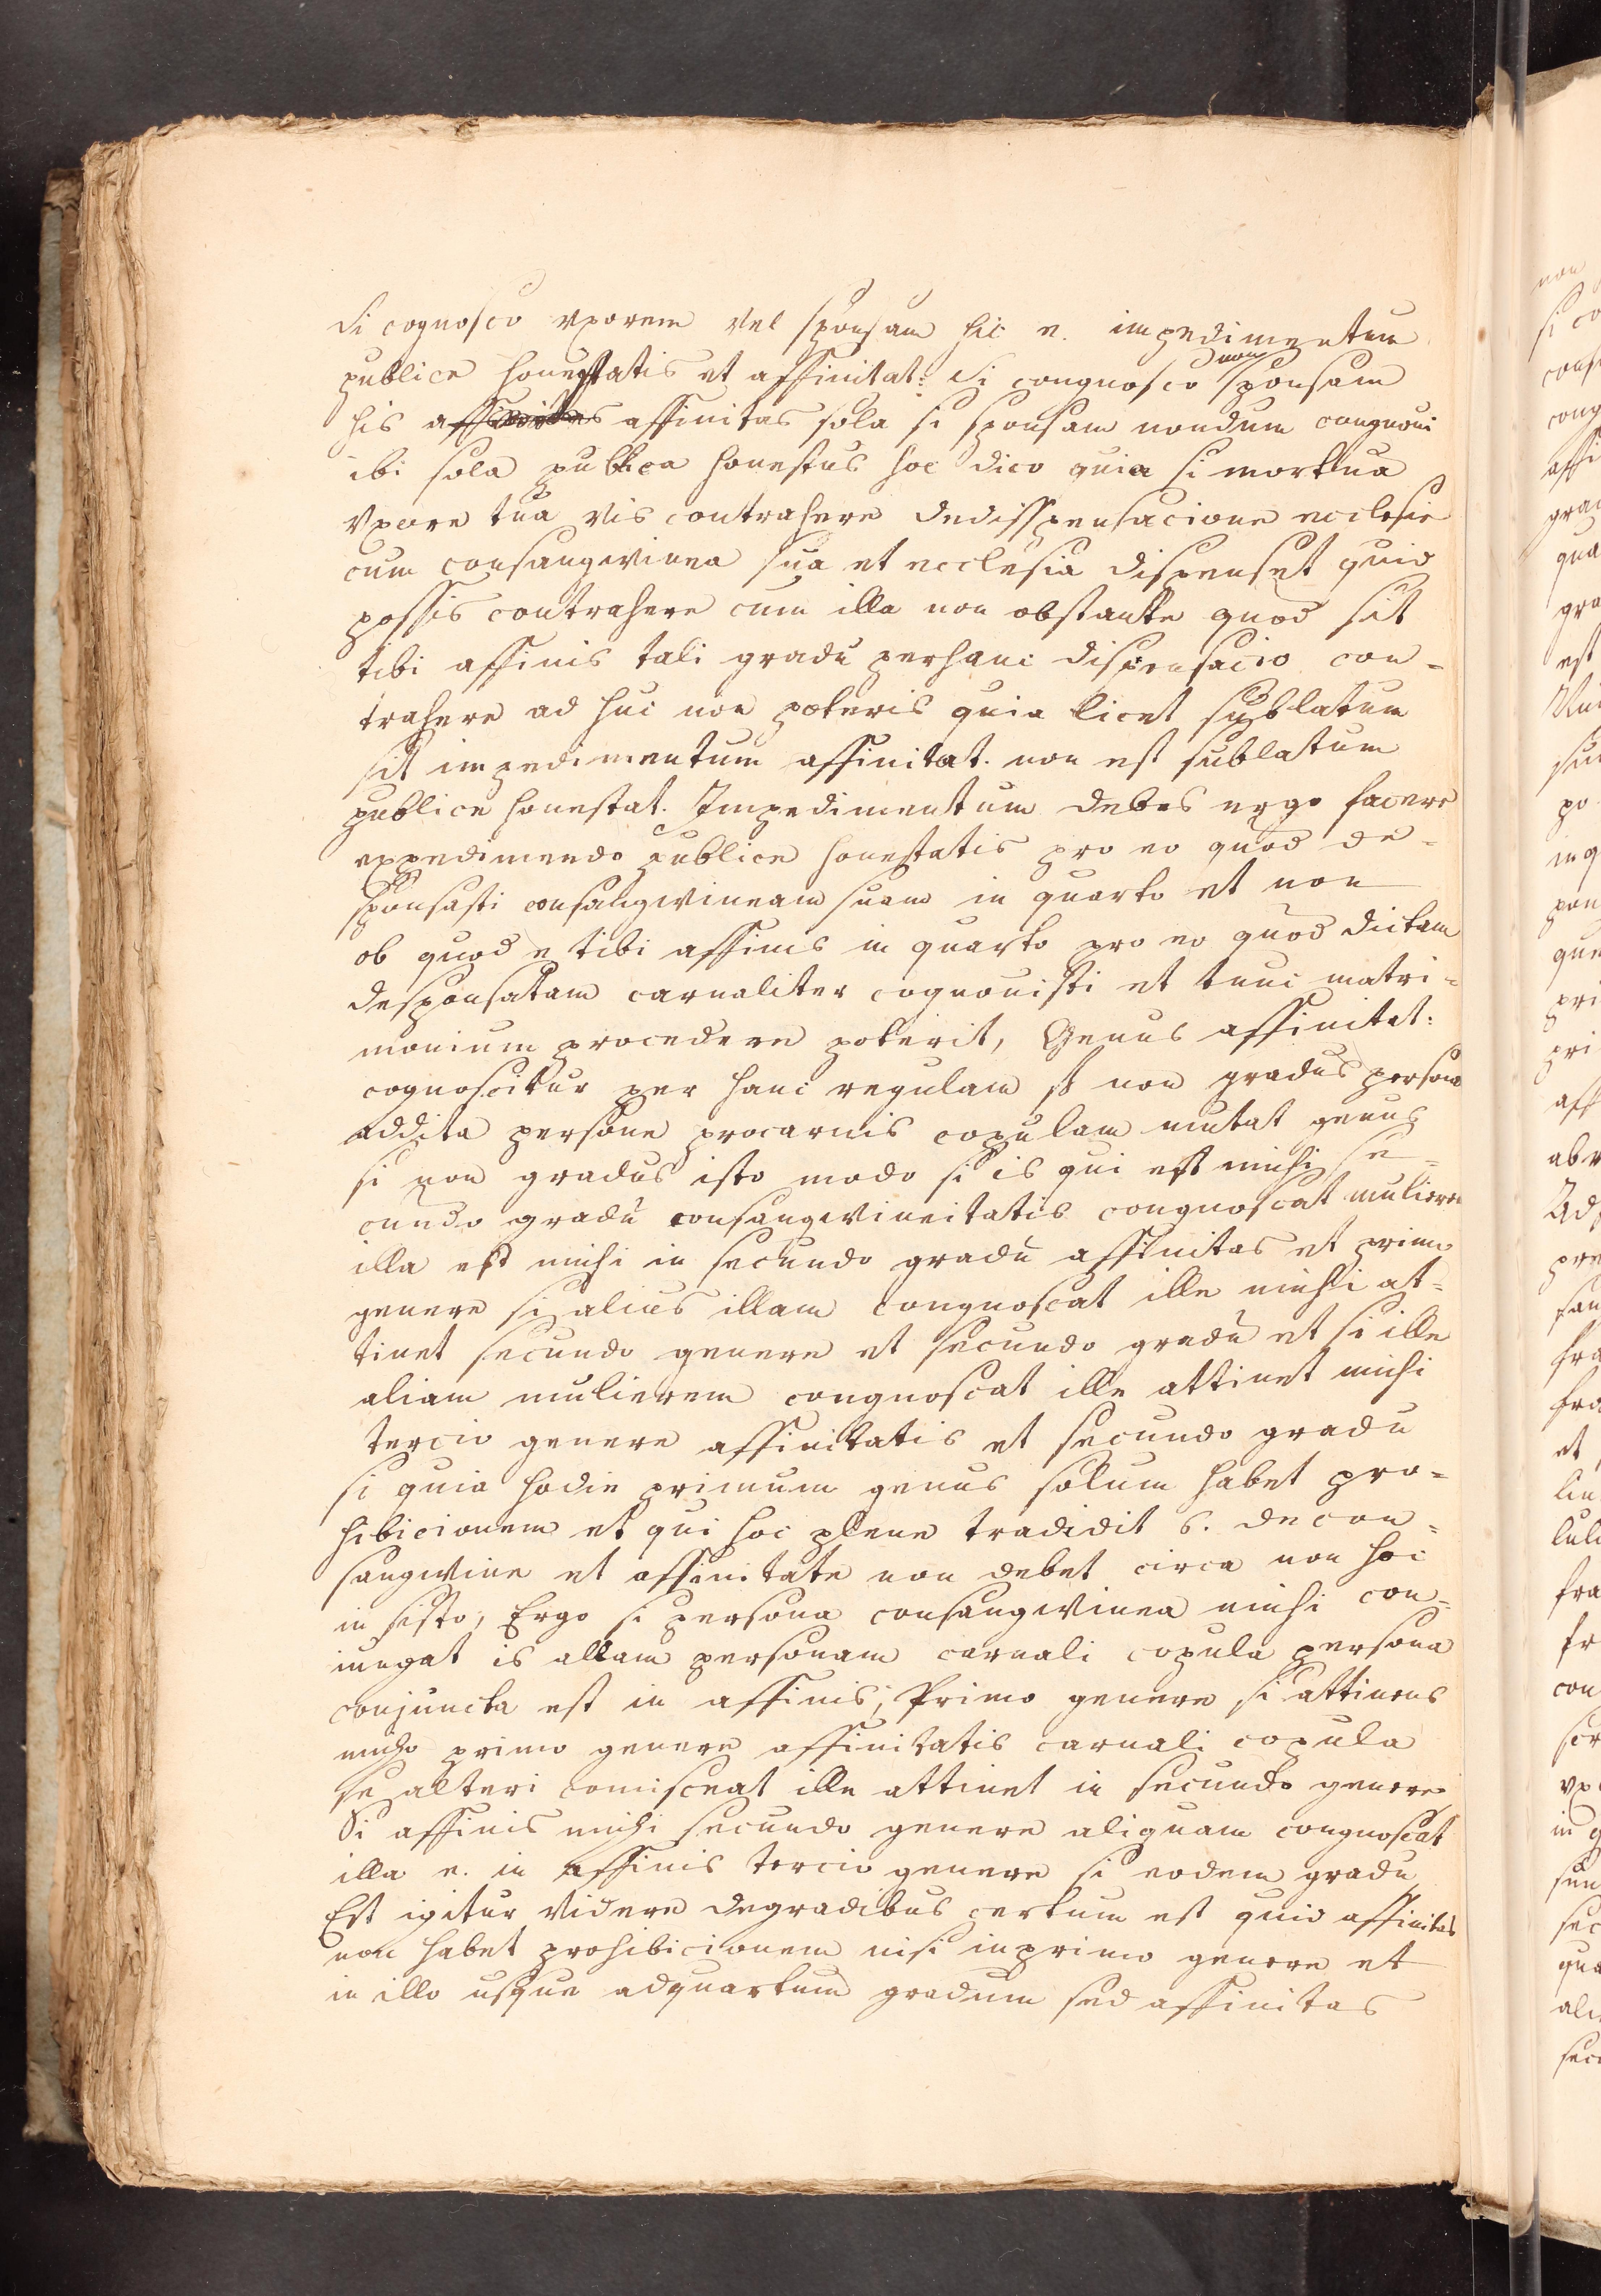 Si cognosco vxorem vel sponsam hic e. impedimentum
publice honestatis et affinitat: Si congnosco non sponsam
his affinitas affinitas sola si sponsam nondum congnoui
ibi sola publica honestus hoc dico quia si mortua
Vxore tua vis contrahere dedisspensacione ecclesie
cum consangwinea sua et ecclesia dispenset quid
possis contrahere cum illa non obstante quod sit
tibi affinis tali gradu perhanc dispensacio con=
trahere ad huc non poteris quia licet sublatum
sit impedimentum affinitat. non est sublatum
publice honestat. Impedimentum debes ergo facere
expedimendo publice honestatis pro eo quod de=
sponsasti consangwineam suam in quarto et non
ob quod e tibi affinis in quarto pro eo quod dictam
desponsatam carnaliter cognouisti et tunc matri=
monium procedere poterit, Genus affinitat:
cognoscitur per hanc regulam si non gradus persona
addita persone procarnis copulam mutat genus
si non gradus isto modo si is qui est michi se=
cundo gradu consangwineitatis congnoscat mulierem
illa est michi in secundo gradu affinitas et primo
genere si alius illam congnoscat ille michi at=
tinet secundo genere et secundo gradu et si ille
aliam mulierem congnoscat ille attinet michi
tercio genere affinitatis et secundo gradu
si quia hodie primum genus solum habet pro=
hibicionem et qui hoc plene tradidit s. de con=
sangwine et affinitate non debet circa non hoc
in sisto, Ergo si persona consangwinea michi con=
iungat is allam personam carnali copula persona
conjuncta est in affinis; Primo genere si attinens
micho primo genere affinitatis carnali copula
se alteri comisceat ille attinet in secundo genere
Si affinis michi secundo genere aliquam congnoscat
illa e. in affinis tercio genere si eodem gradu
Est igitur videre degradibus certum est quid affinitas
non habet prohibicionem nisi inprimo genere et
in illo usque adquartum gradum sed affinitas